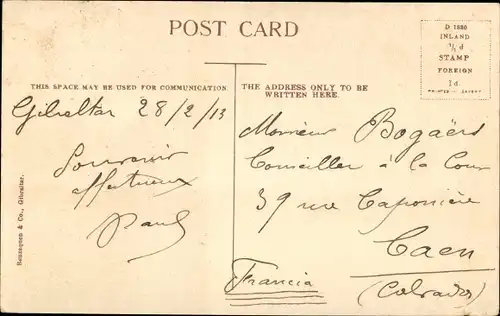 POST CARD
D 1880
INLAND
½ d
STAMP
FOREIGN
1d
THIS SPACE MAY BE USED FOR COMMUNICATION.
THE ADDRESS ONLY TO BE
WRITTEN HERE.
Gibraltar 28/2/13
Souvenir
affectueux
Paul
Monsieur Bogaërs
Conseiller à la Cour
39 rue Caponière
Caen
(Calvados)
Francia
Beanaquen & Co., Gibraltar.